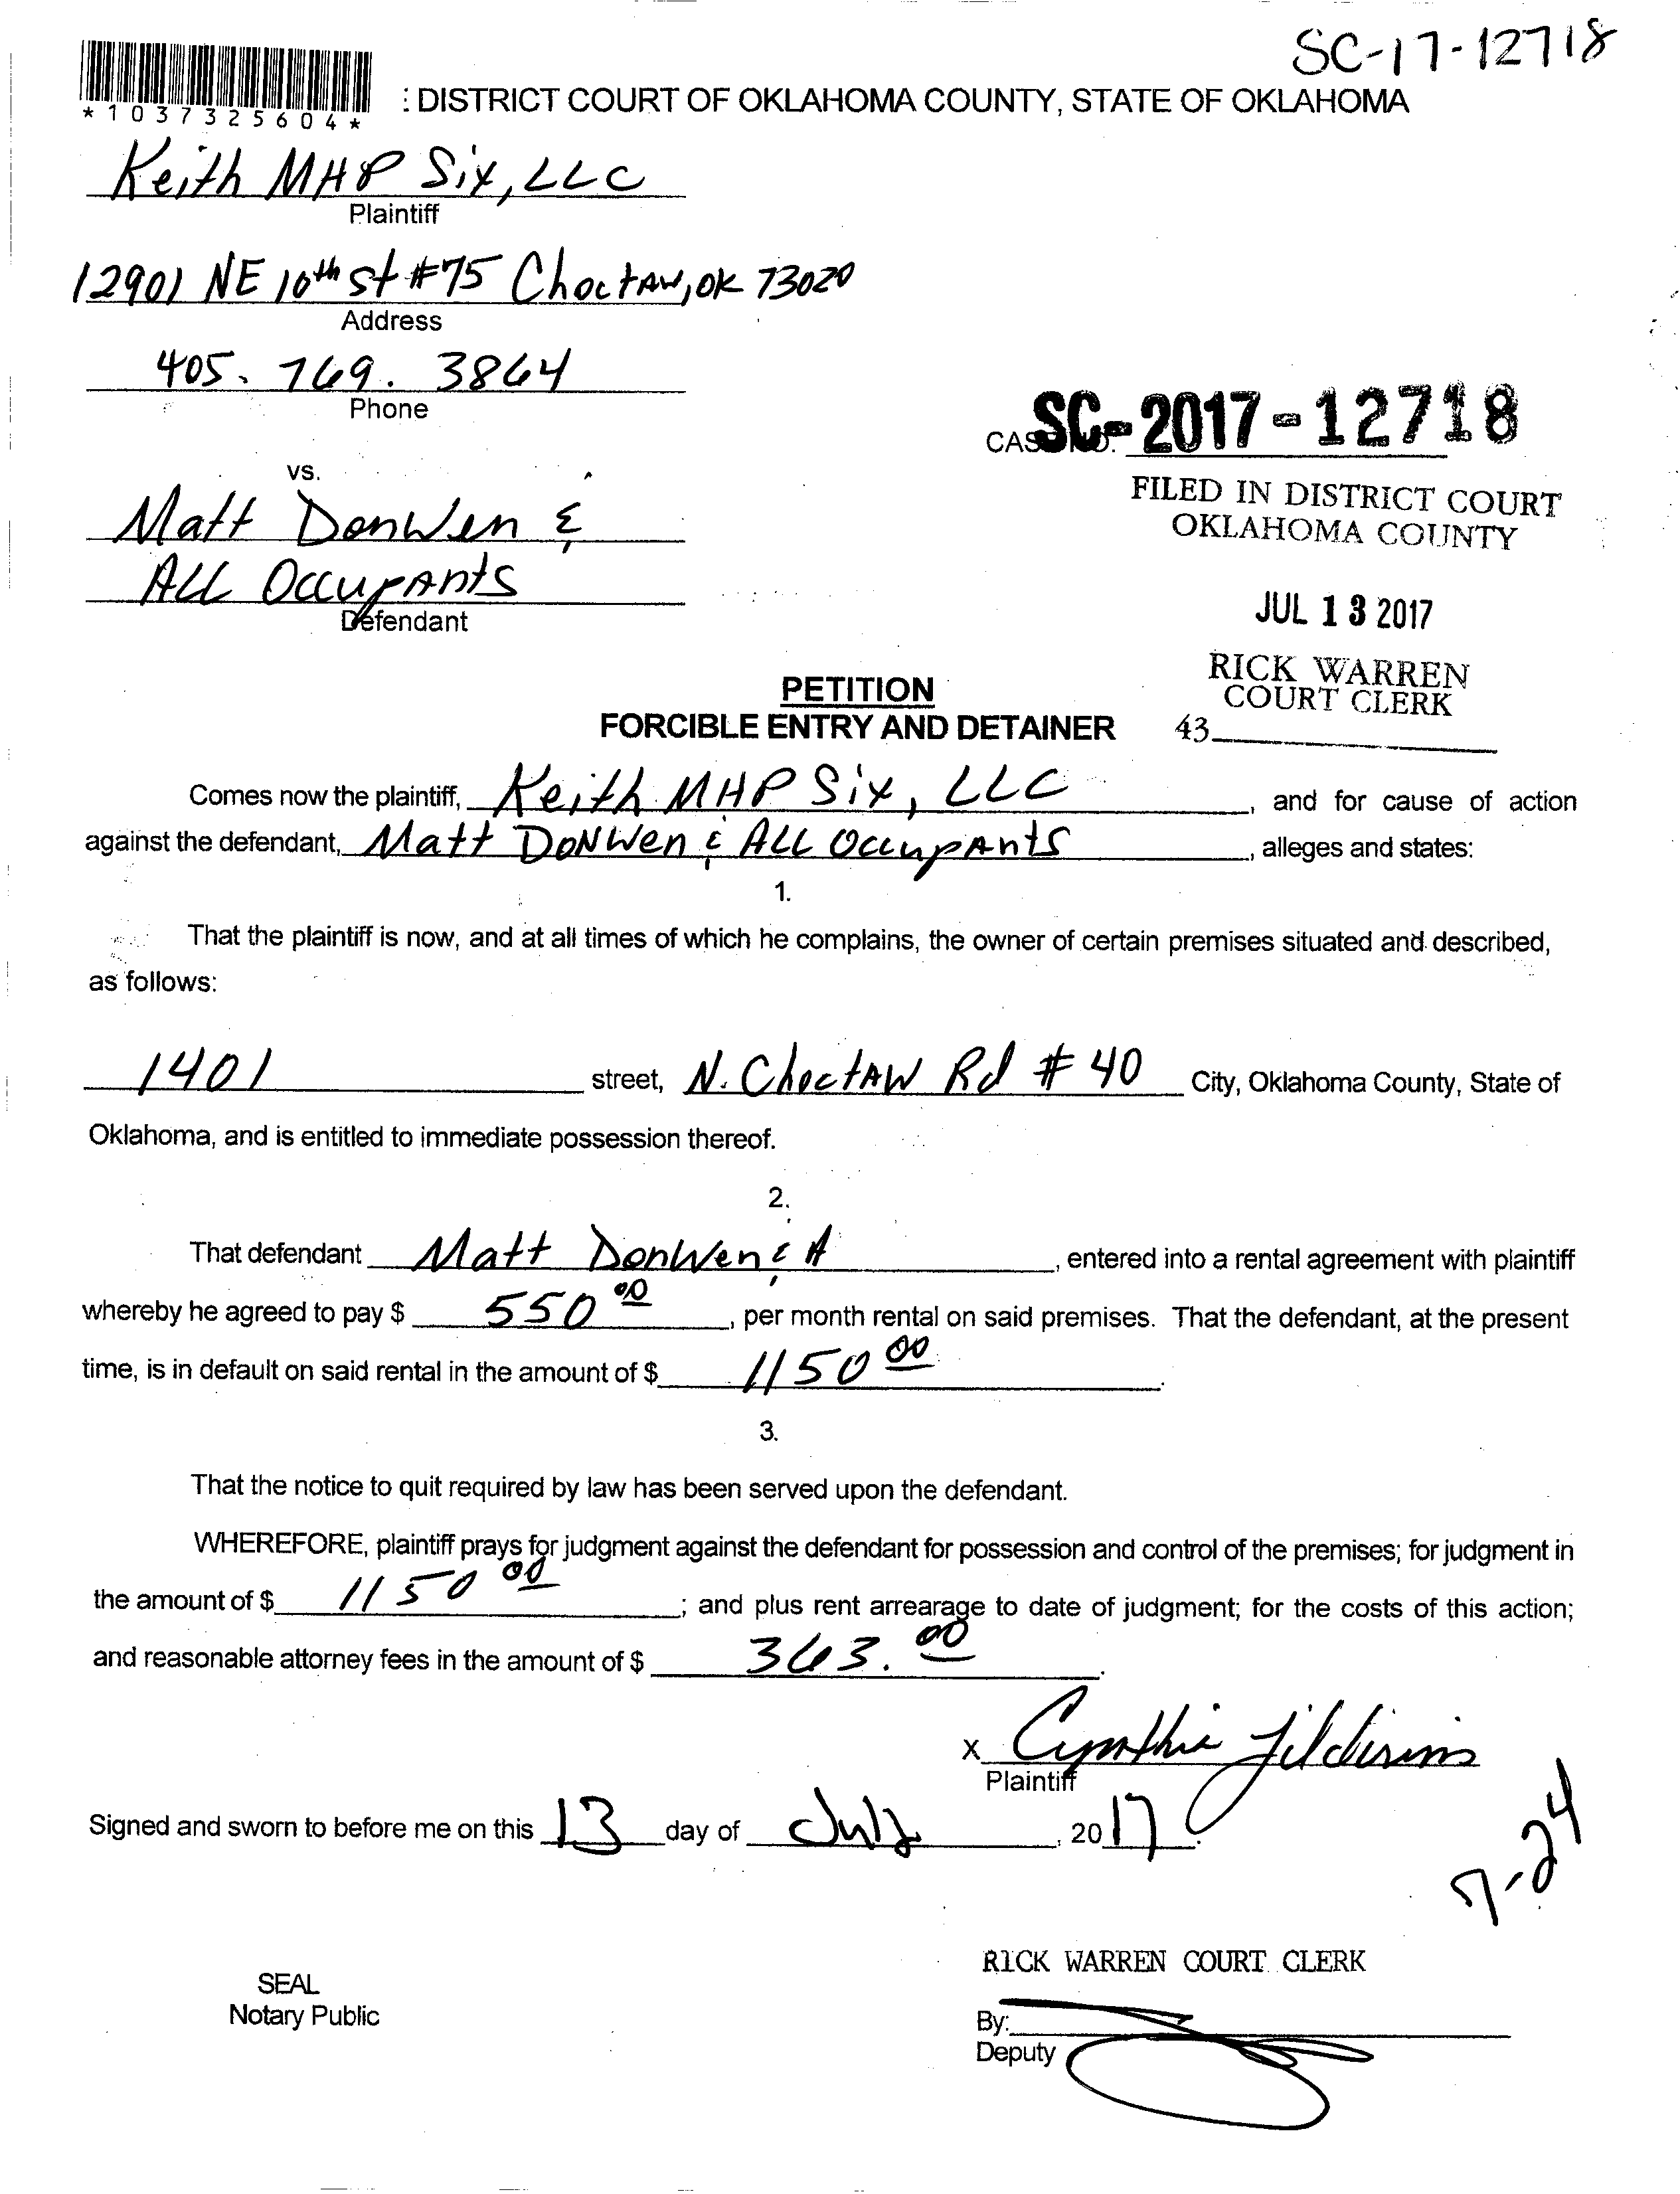 SC-17-12718
*1037325604*
: DISTRICT COURT OF OKLAHOMA COUNTY, STATE OF OKLAHOMA
Keith MHP Six, LLC
Plaintiff
12901 NE 10th St #75 Choctaw, OK 73020
Address
405. 769. 3864
Phone
SC-2017-12718
FILED IN DISTRICT COURT
OKLAHOMA COUNTY
vs.
Matt DonWen &
ALL OccupAnts
Defendant
JUL 13 2017
RICK WARREN
COURT CLERK
43
PETITION
FORCIBLE ENTRY AND DETAINER
Comes now the plaintiff, Keith MHP Six, LLC, and for cause of action
against the defendant, Matt DonWen & ALL OccupAnts, alleges and states:
1.
That the plaintiff is now, and at all times of which he complains, the owner of certain premises situated and described,
as follows:
1401 street, N. Choctaw Rd # 40 City, Oklahoma County, State of
Oklahoma, and is entitled to immediate possession thereof.
2.
That defendant Matt DonWen & A, entered into a rental agreement with plaintiff
whereby he agreed to pay $ 550 00, per month rental on said premises. That the defendant, at the present
time, is in default on said rental in the amount of $ 1150 00.
3.
That the notice to quit required by law has been served upon the defendant.
WHEREFORE, plaintiff prays for judgment against the defendant for possession and control of the premises; for judgment in
the amount of $ 1150 00; and plus rent arrearage to date of judgment; for the costs of this action;
and reasonable attorney fees in the amount of $ 363. 00.
X Cynthia
Plaintiff
Signed and sworn to before me on this 13 day of July, 2017.
7-24
RICK WARREN COURT CLERK
SEAL
Notary Public
By:
Deputy